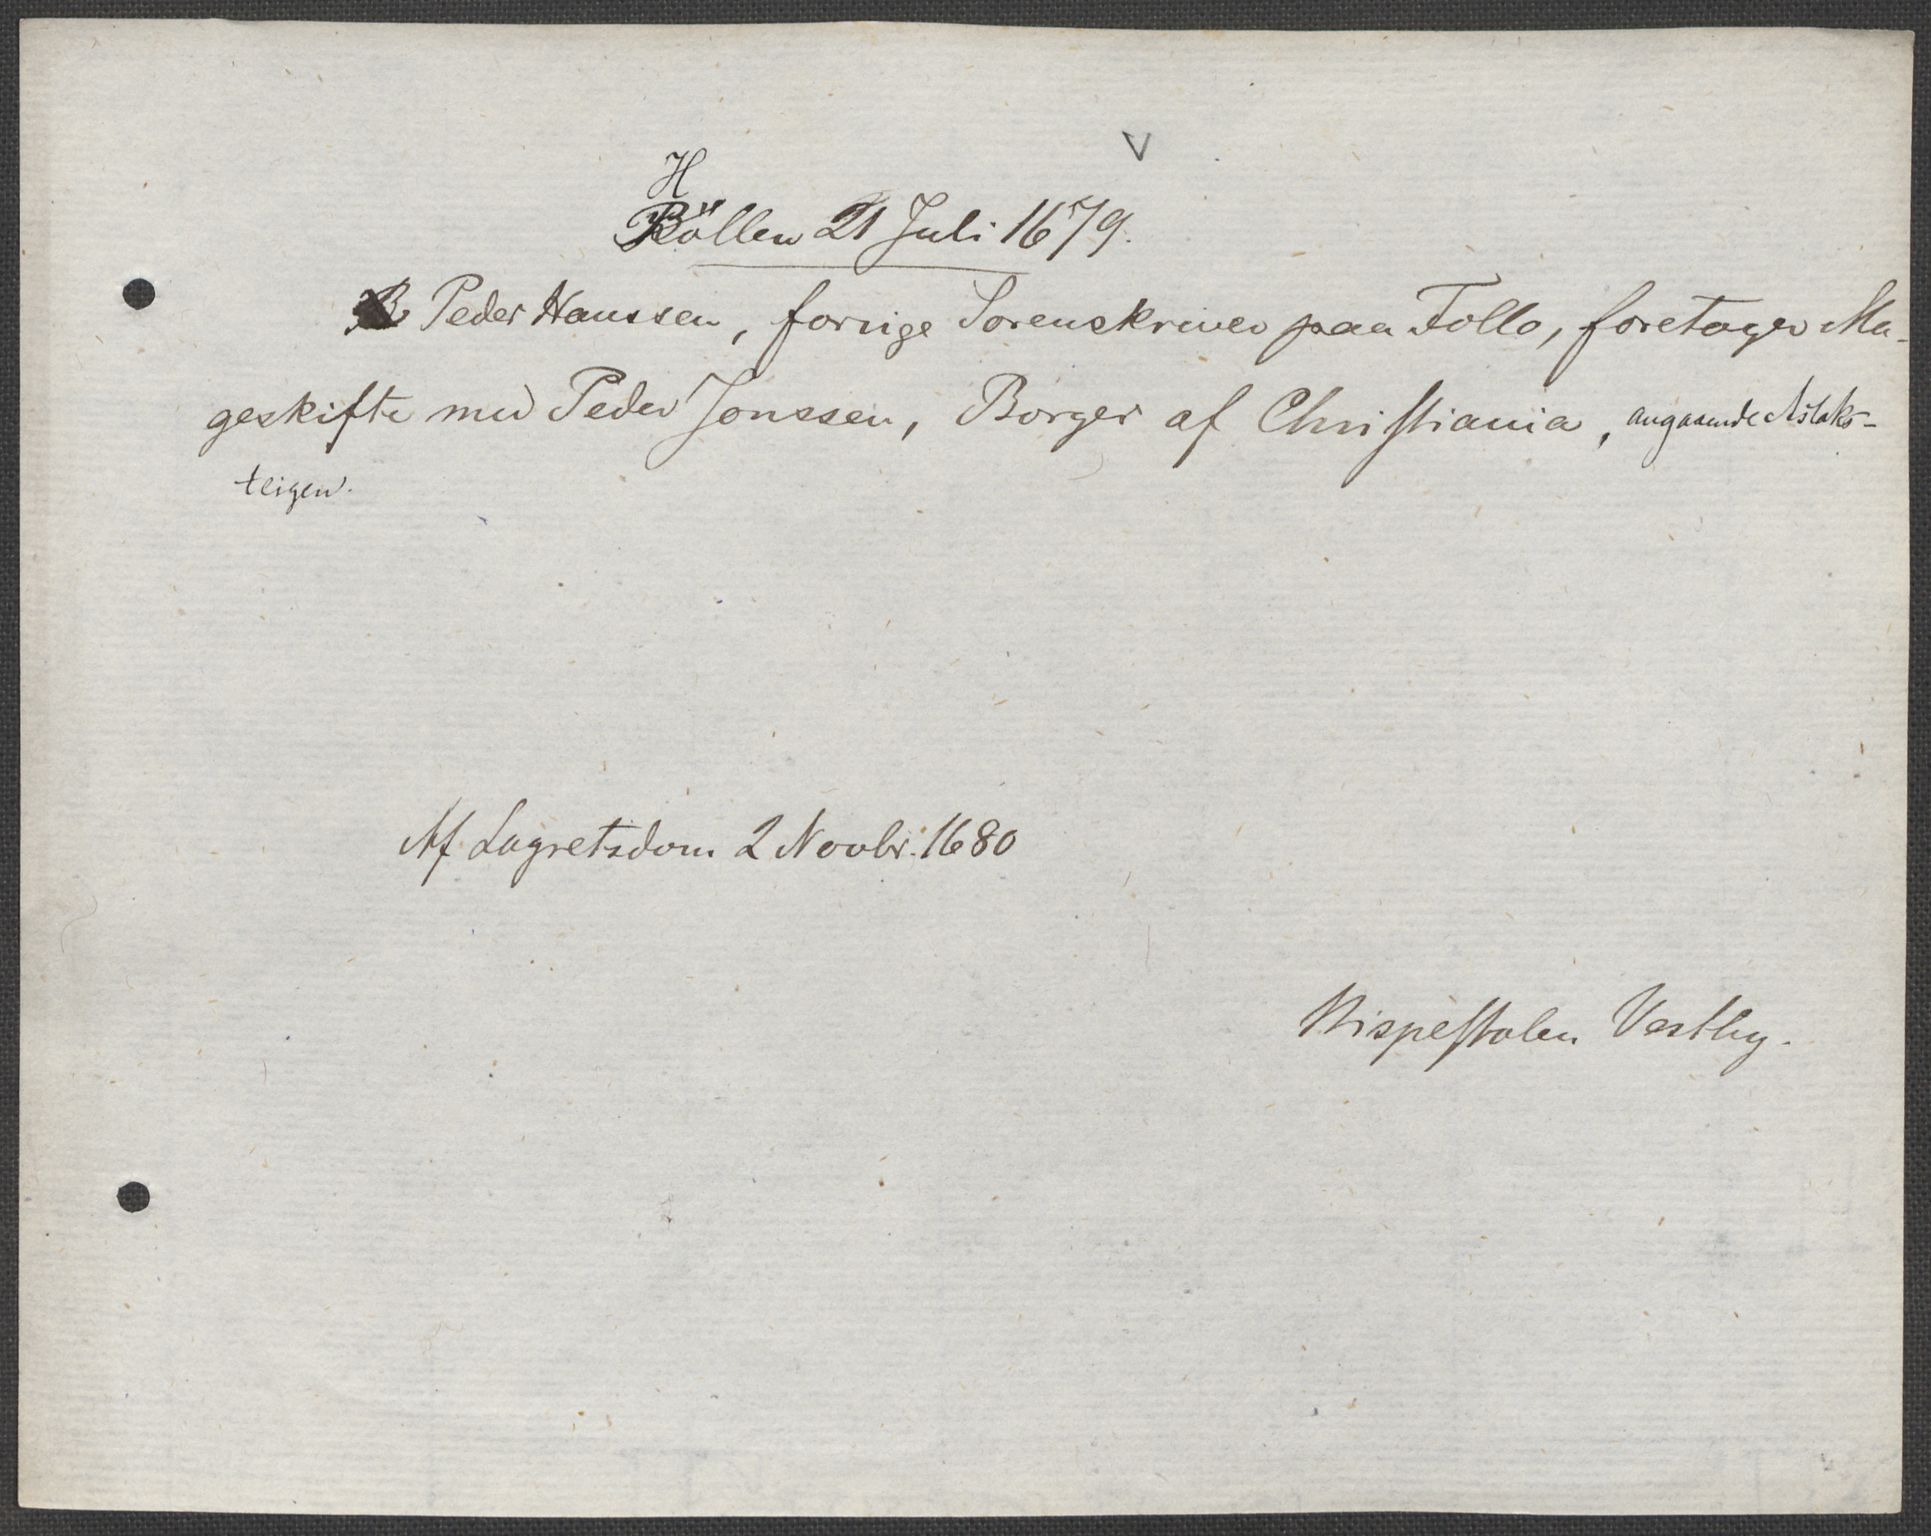 V
H
Röllen 21 Juli 1679.
Peder Hanssen, forrige Sorenskriver paa Follo, foretager Ma-
geskifte med Peder Jonssen, Borger af Christiania, angaaende Aslaks-
teigen.
Af Lagretsdom 2 Novbr. 1680
Rispestolen Vestby.